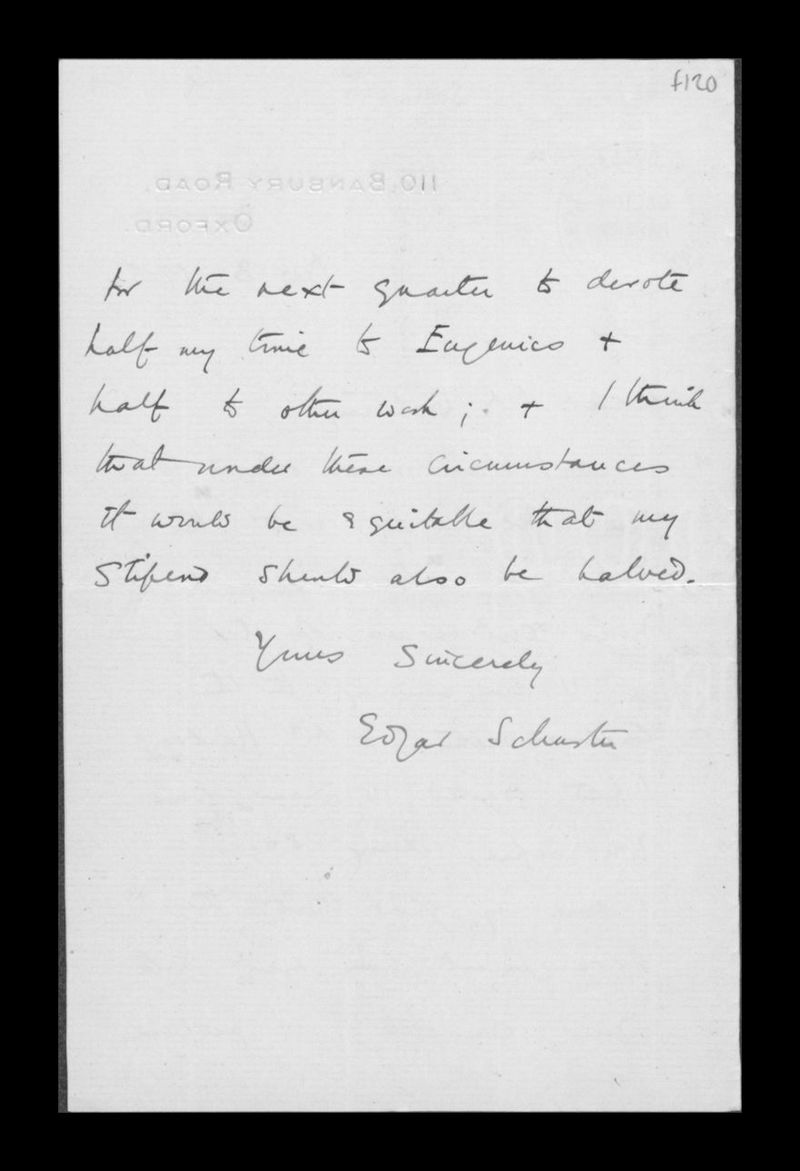 f120
110, BANBURY ROAD,
OXFORD.
for the next quarter to devote
half my time to Eugenics +
half to other work; + I think
that under these circumstances
it would be equitable that my
Stipend should also be halved.
Yours Sincerely
Edgar Schuster